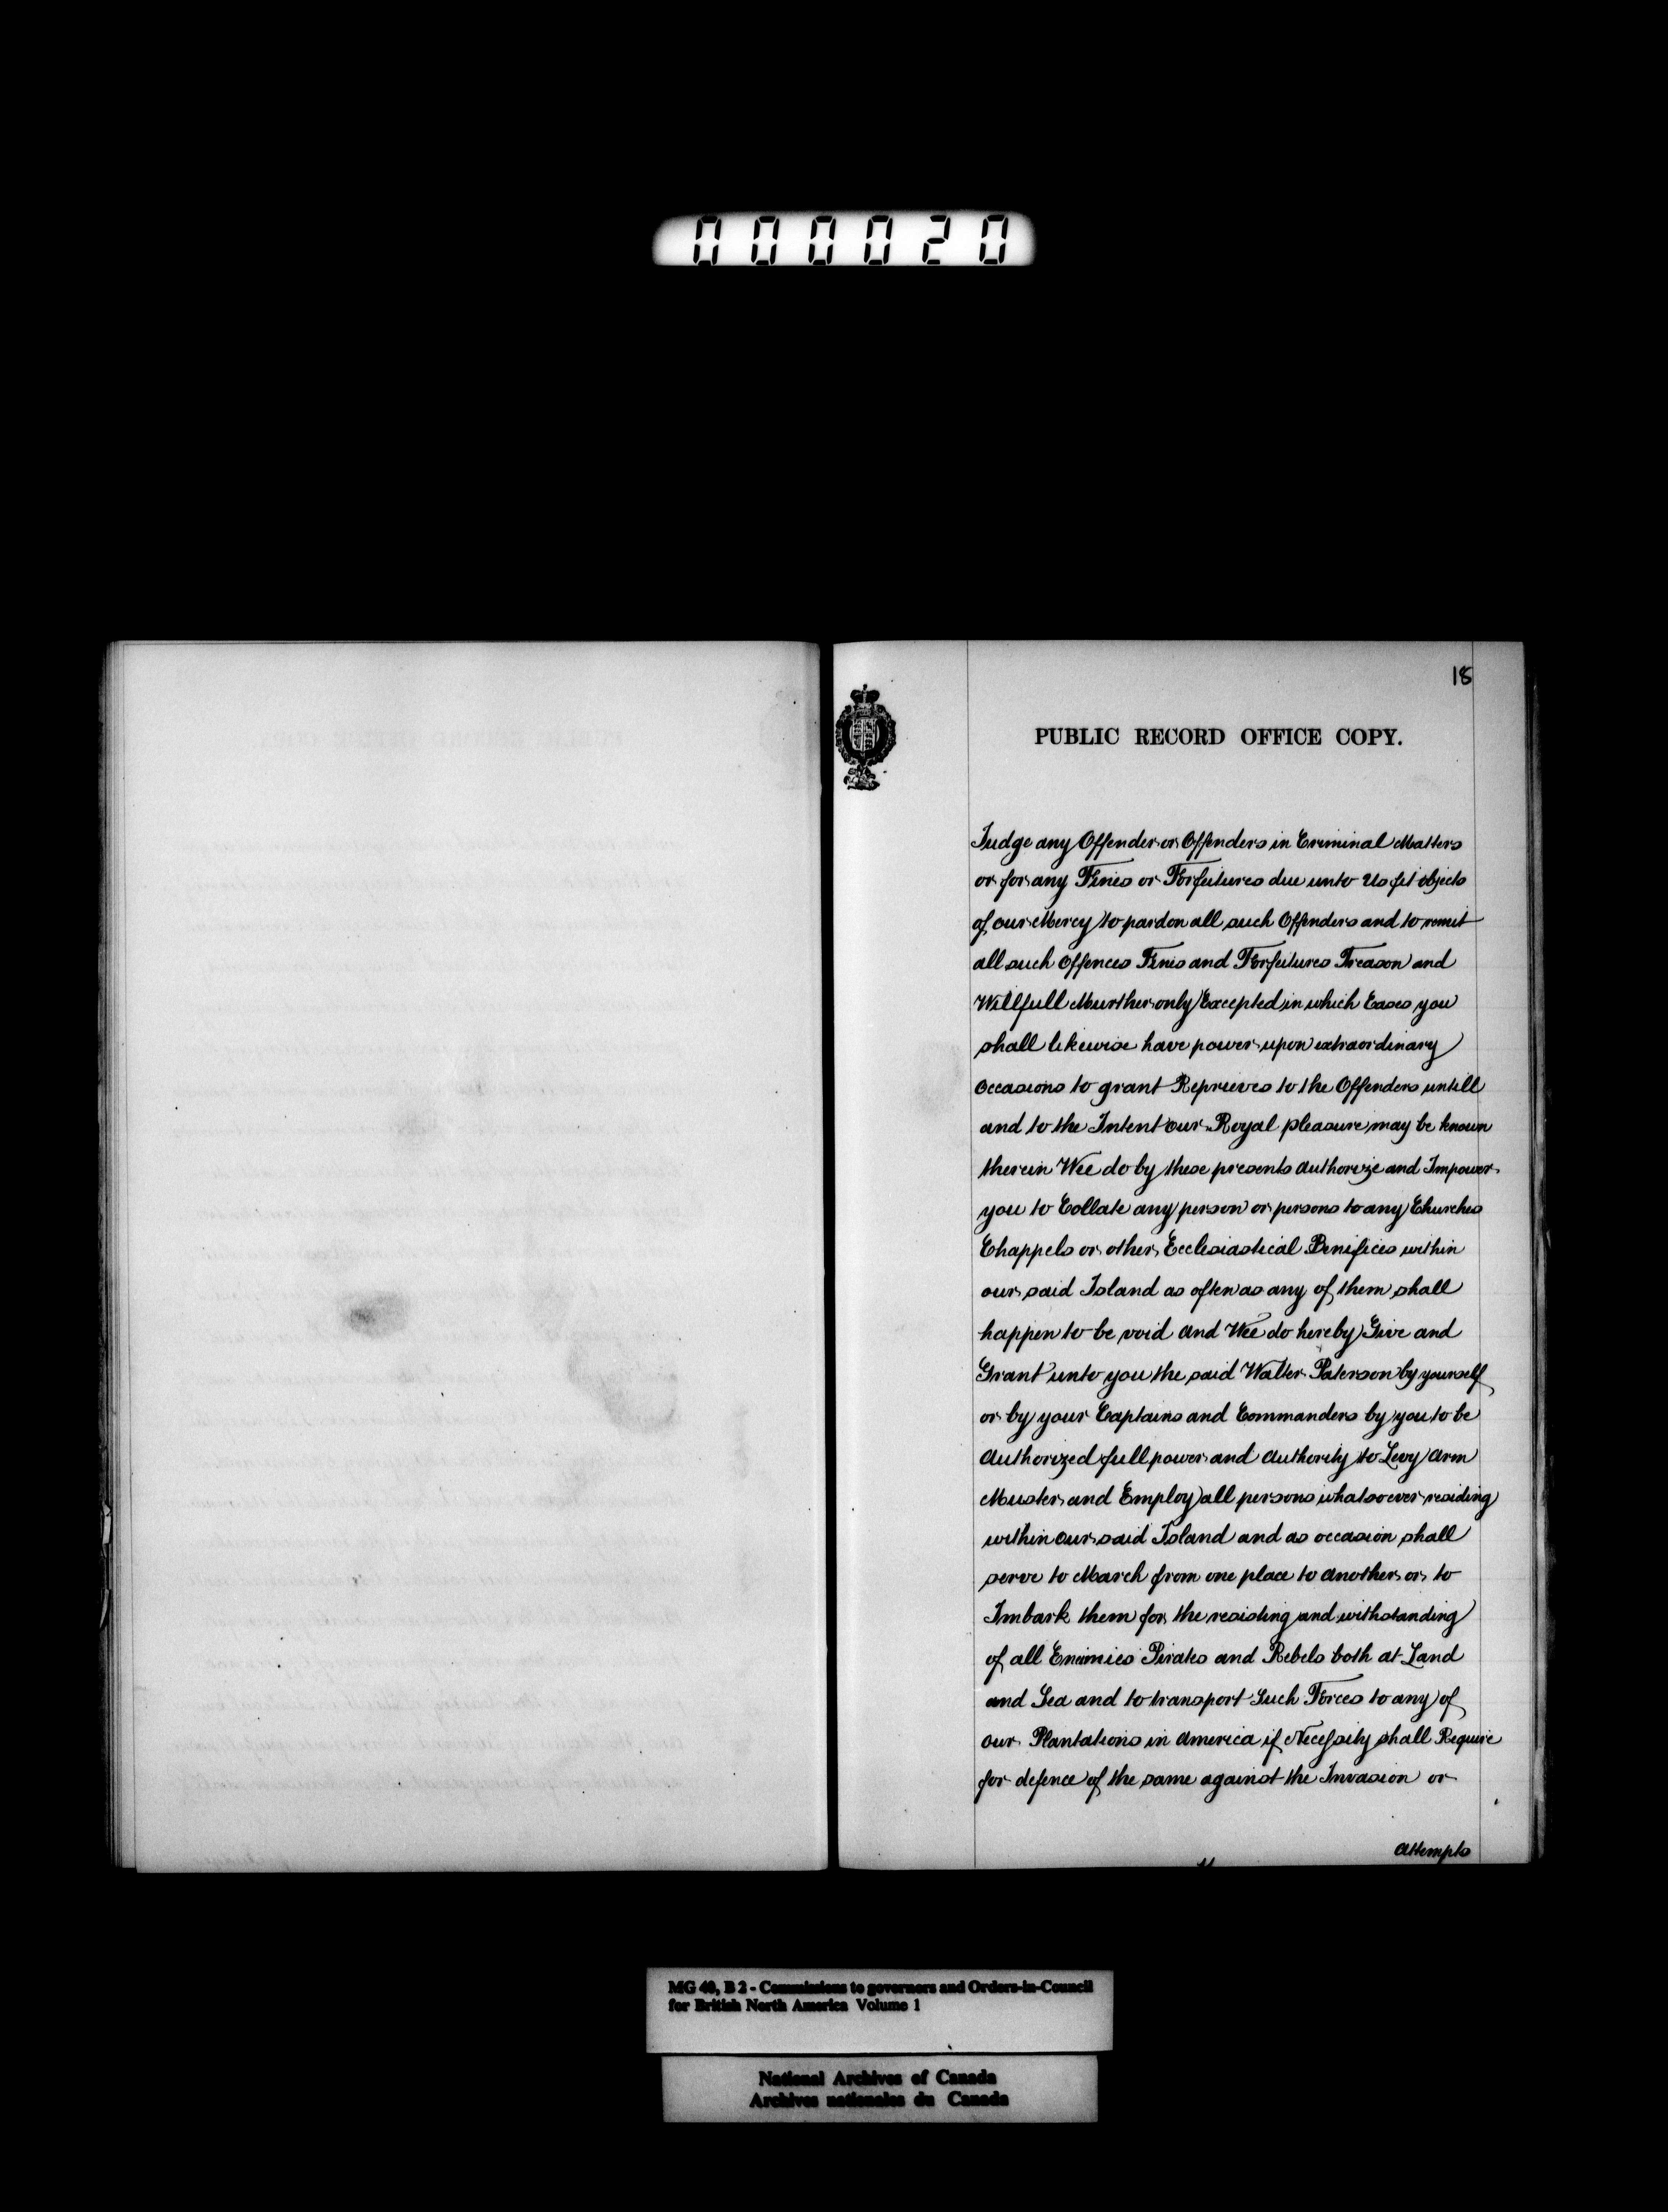 000020
18
PUBLIC RECORD OFFICE COPY.
Judge any Offender or Offenders in Criminal Matters
or for any Fines or Forfeitures due unto Us fit objects
of our Mercy to pardon all such Offenders and to remit
all such Offences Fines and Forfeitures Treason and
Willfull Murther only Excepted in which Cases you
shall likewise have power upon extraordinary
Occasions to grant Reprieves to the Offenders untill
and to the Intent our Royal pleasure may be known
therein Wee do by these presents Authorize and Impower
you to Collate any person or persons to any Churches
Chappels or other Ecclesiastical Benifices within
our said Island as often as any of them shall
happen to be void And Wee do hereby Give and
Grant unto you the said Walter Paterson by yourself
or by your Captains and Commanders by you to be
Authorized full power and Authority to Levy Arm
Muster and Employ all persons whatsoever residing
within our said Island and as occasion shall
serve to March from one place to Another or to
Imbark them for the resisting and withstanding
of all Enimies Pirates and Rebels both at Land
and Sea and to transport Such Forces to any of
our Plantations in America if Necessity shall Require
for defence of the same against the Invasion or
Attempts
MG 40, B 2 - Commissions to governors and Orders-in-Council
for British North America Volume 1
National Archives of Canada
Archives nationales du Canada